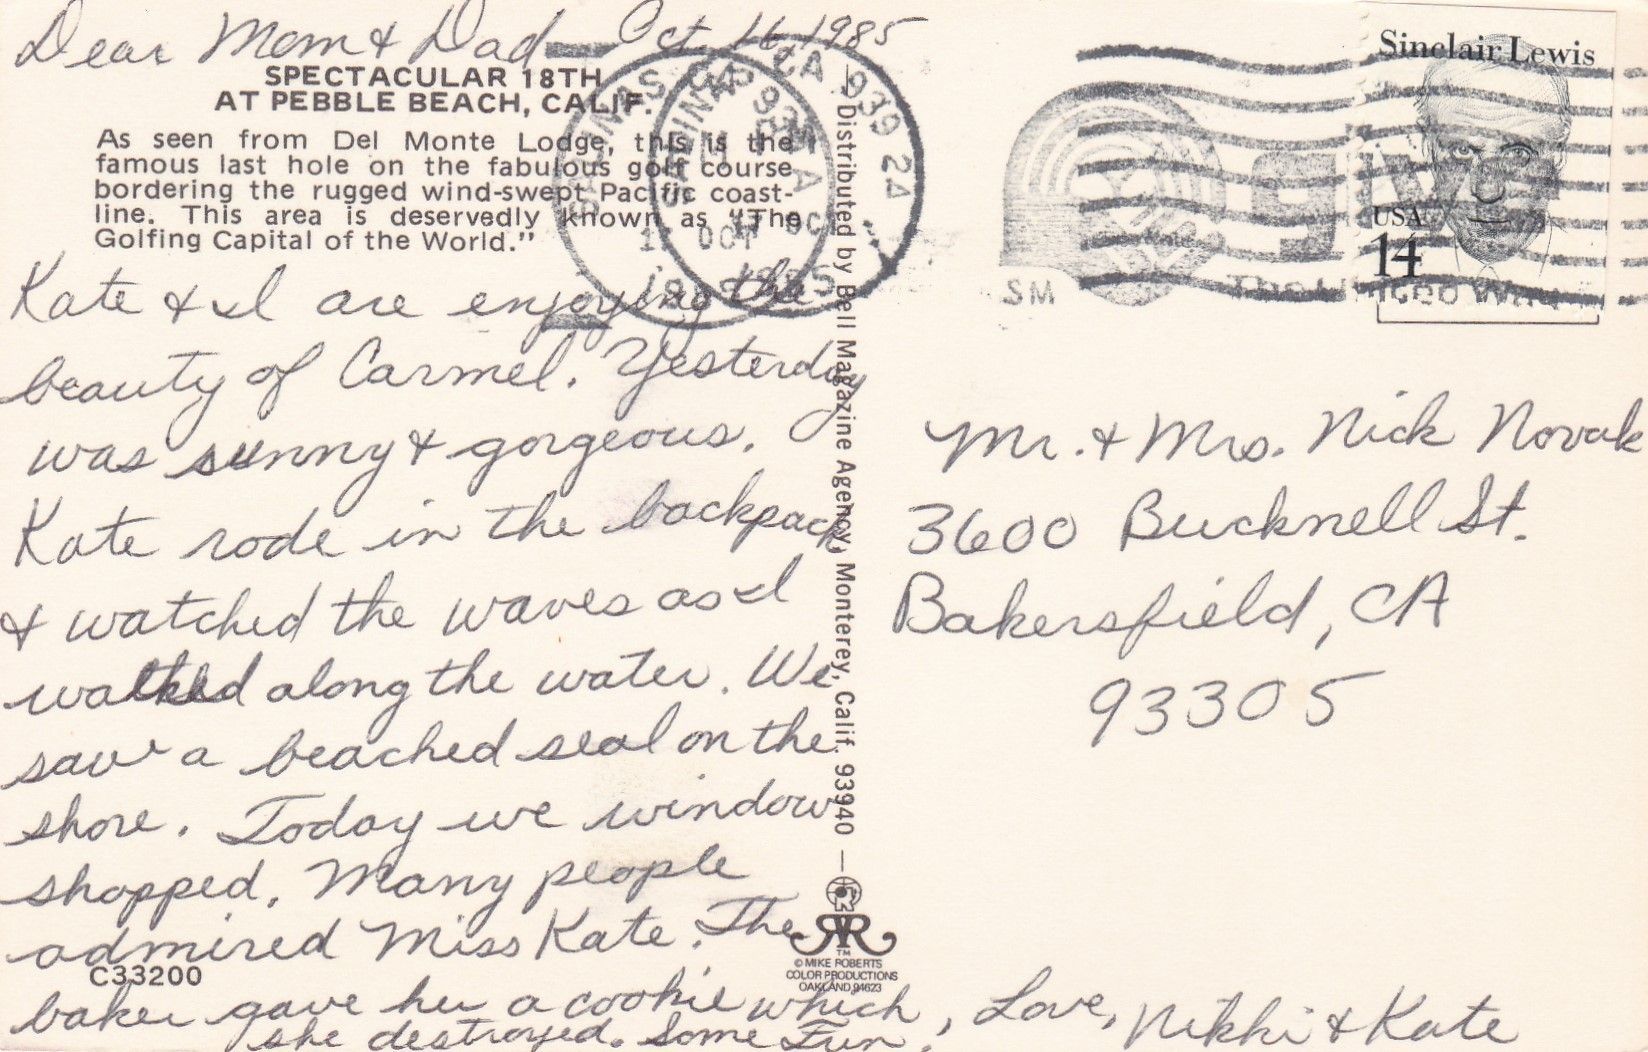 Dear Mom & Dad Oct. 16, 1985
SPECTACULAR 18TH
AT PEBBLE BEACH, CALIF.
As seen from Del Monte Lodge, this is the
famous last hole on the fabulous golf course
bordering the rugged wind-swept Pacific coast-
line. This area is deservedly known as "The
Golfing Capital of the World."
Kate & I are enjoying the
beauty of Carmel. Yesterday
was sunny & gorgeous.
Kate rode in the backpack
& watched the waves as I
walked along the water. We
saw a beached seal on the
shore. Today we window
shopped. Many people
admired Miss Kate. The
baker gave her a cookie which
she destroyed. Some Fun!
Love, Nikki & Kate
C33200
Distributed by Bell Magazine Agency, Monterey, Calif. 93940 —
TM
© MIKE ROBERTS
COLOR PRODUCTIONS
OAKLAND 94623
CA 939 24
OCT
1985
SM
The United Way
Sinclair Lewis
USA
14
Mr. & Mrs. Nick Novak
3600 Bucknell St.
Bakersfield, CA
93305